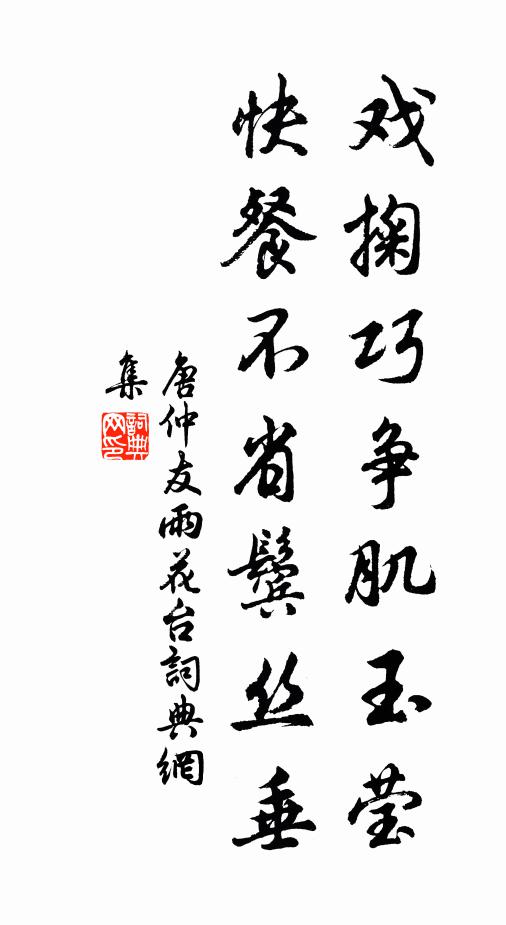 戏掬巧争肌玉莹
快餐不省鬓丝垂
唐仲友雨花台詞典網
集
詞典網印